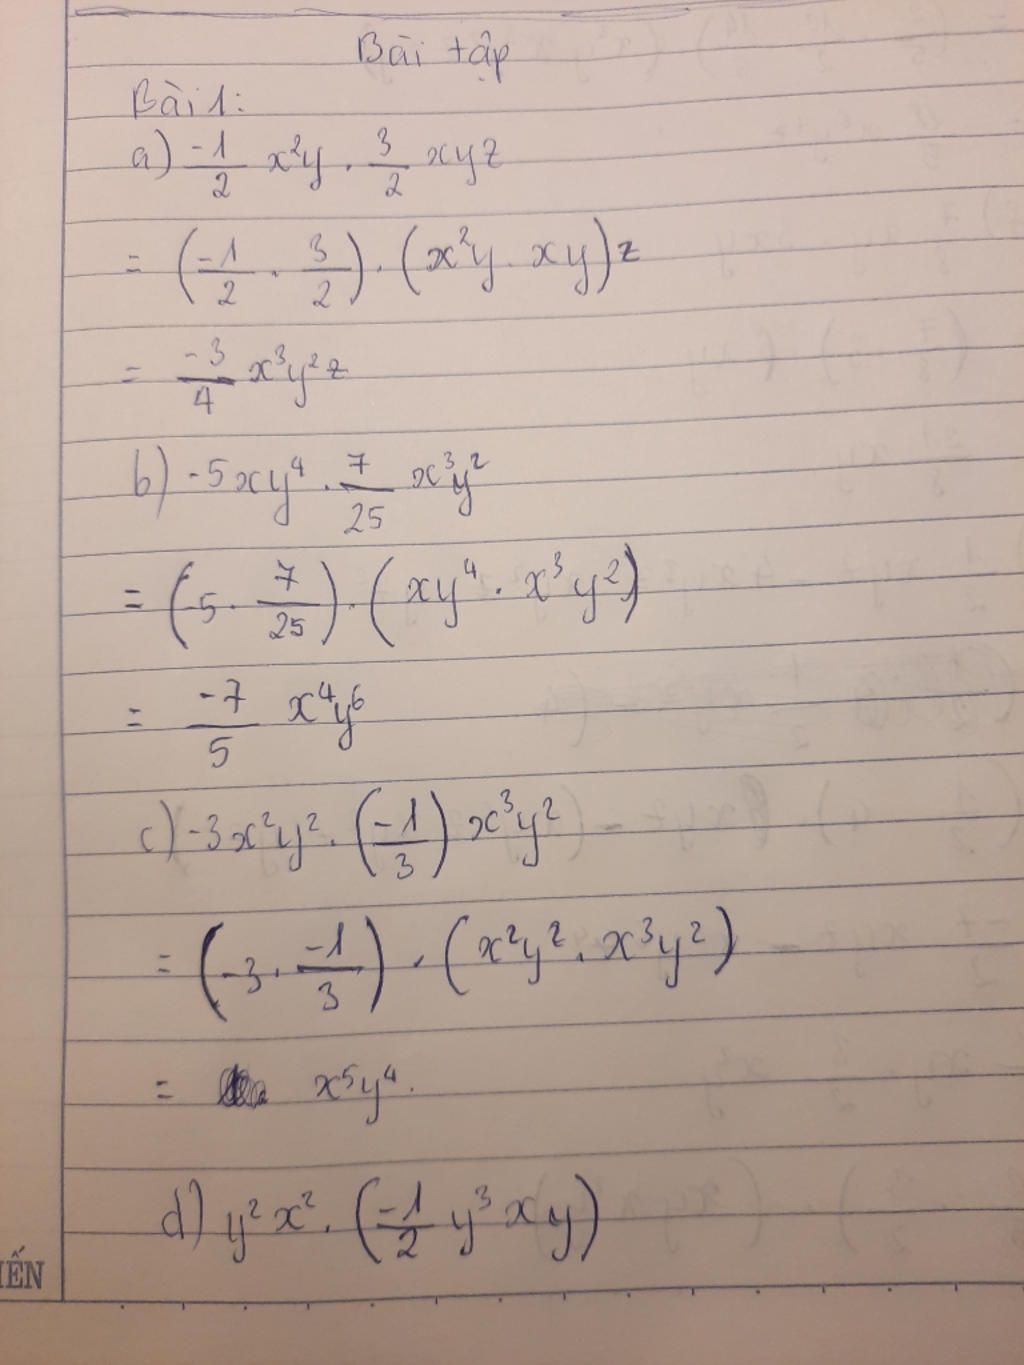 Bài tập
Bài 1:
a) -1/2 x²y . 3/2 xyz
= (-1/2 . 3/2) . (x²y . xy)z
= -3/4 x³y²z
b) -5xy⁴ . 7/25 x³y²
= (-5 . 7/25) . (xy⁴ . x³y²)
= -7/5 x⁴y⁶
c) -3x²y² . (-1/3) x³y²
= (-3 . -1/3) . (x²y² . x³y²)
= x⁵y⁴.
d) y²x² . (-1/2 y³xy)
IẾN